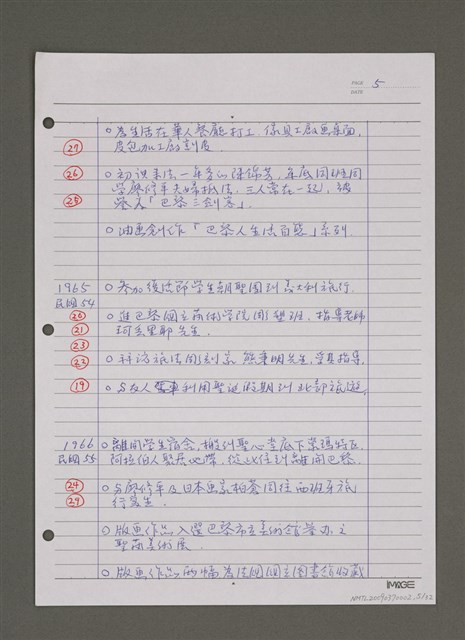 PAGE 5
DATE
○為生活在華人餐廳打工、傢具工廠畫桌面,
27 皮包加工廠割皮.
26 ○初識來法一年多的陳錦芳、年底同班同
學廖修平夫婦抵法,三人常在一起,被
25 譽為「巴黎三劍客」.
○油畫創作「巴黎人生活百態」系列.
1965 ○參加後法師學生朝聖團到義大利旅行.
民國54
20 ○進巴黎國立高等美術學院 版畫班,指導老師
21 柯丟里耶先生.
23
22 ○拜訪旅法雕刻家 熊秉明先生,受其指導.
19 ○與友人 利用聖誕假期到北部旅遊.
1966 ○離開學生宿舍,搬到聖心堂底下蒙瑪特區
民國55 阿拉伯人聚居地帶,從此住到離開巴黎.
24 ○與廖修平及日本畫家柏 同往西班牙旅
29 行寫生.
○版畫作品入選巴黎市立美術館舉辦之
聖 美術展.
○版畫作品兩幅為法國國立圖書館收藏
IMAGE
NMTL20090370002.5/12